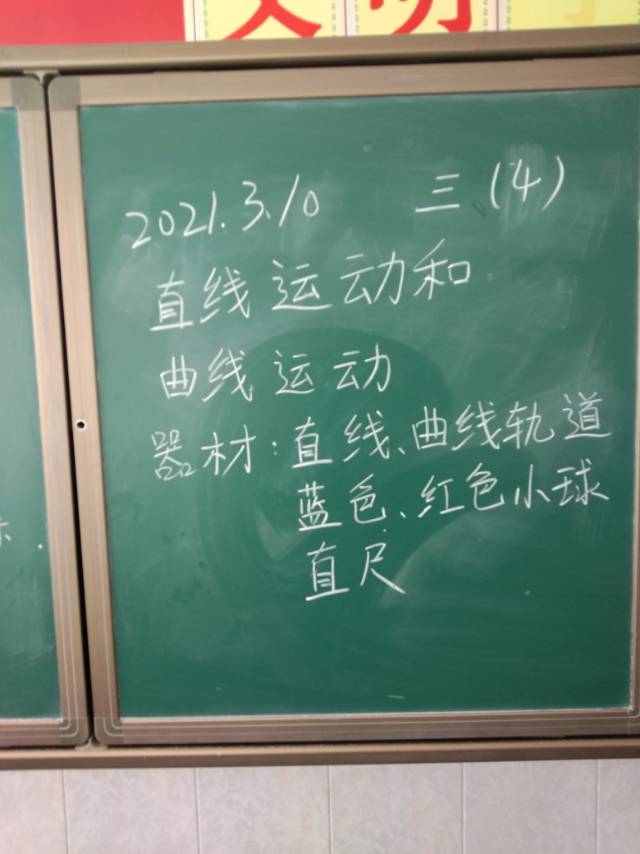 文明
2021.3.10 三(4)
直线运动和
曲线运动
器材:直线、曲线轨道
蓝色、红色小球
直尺